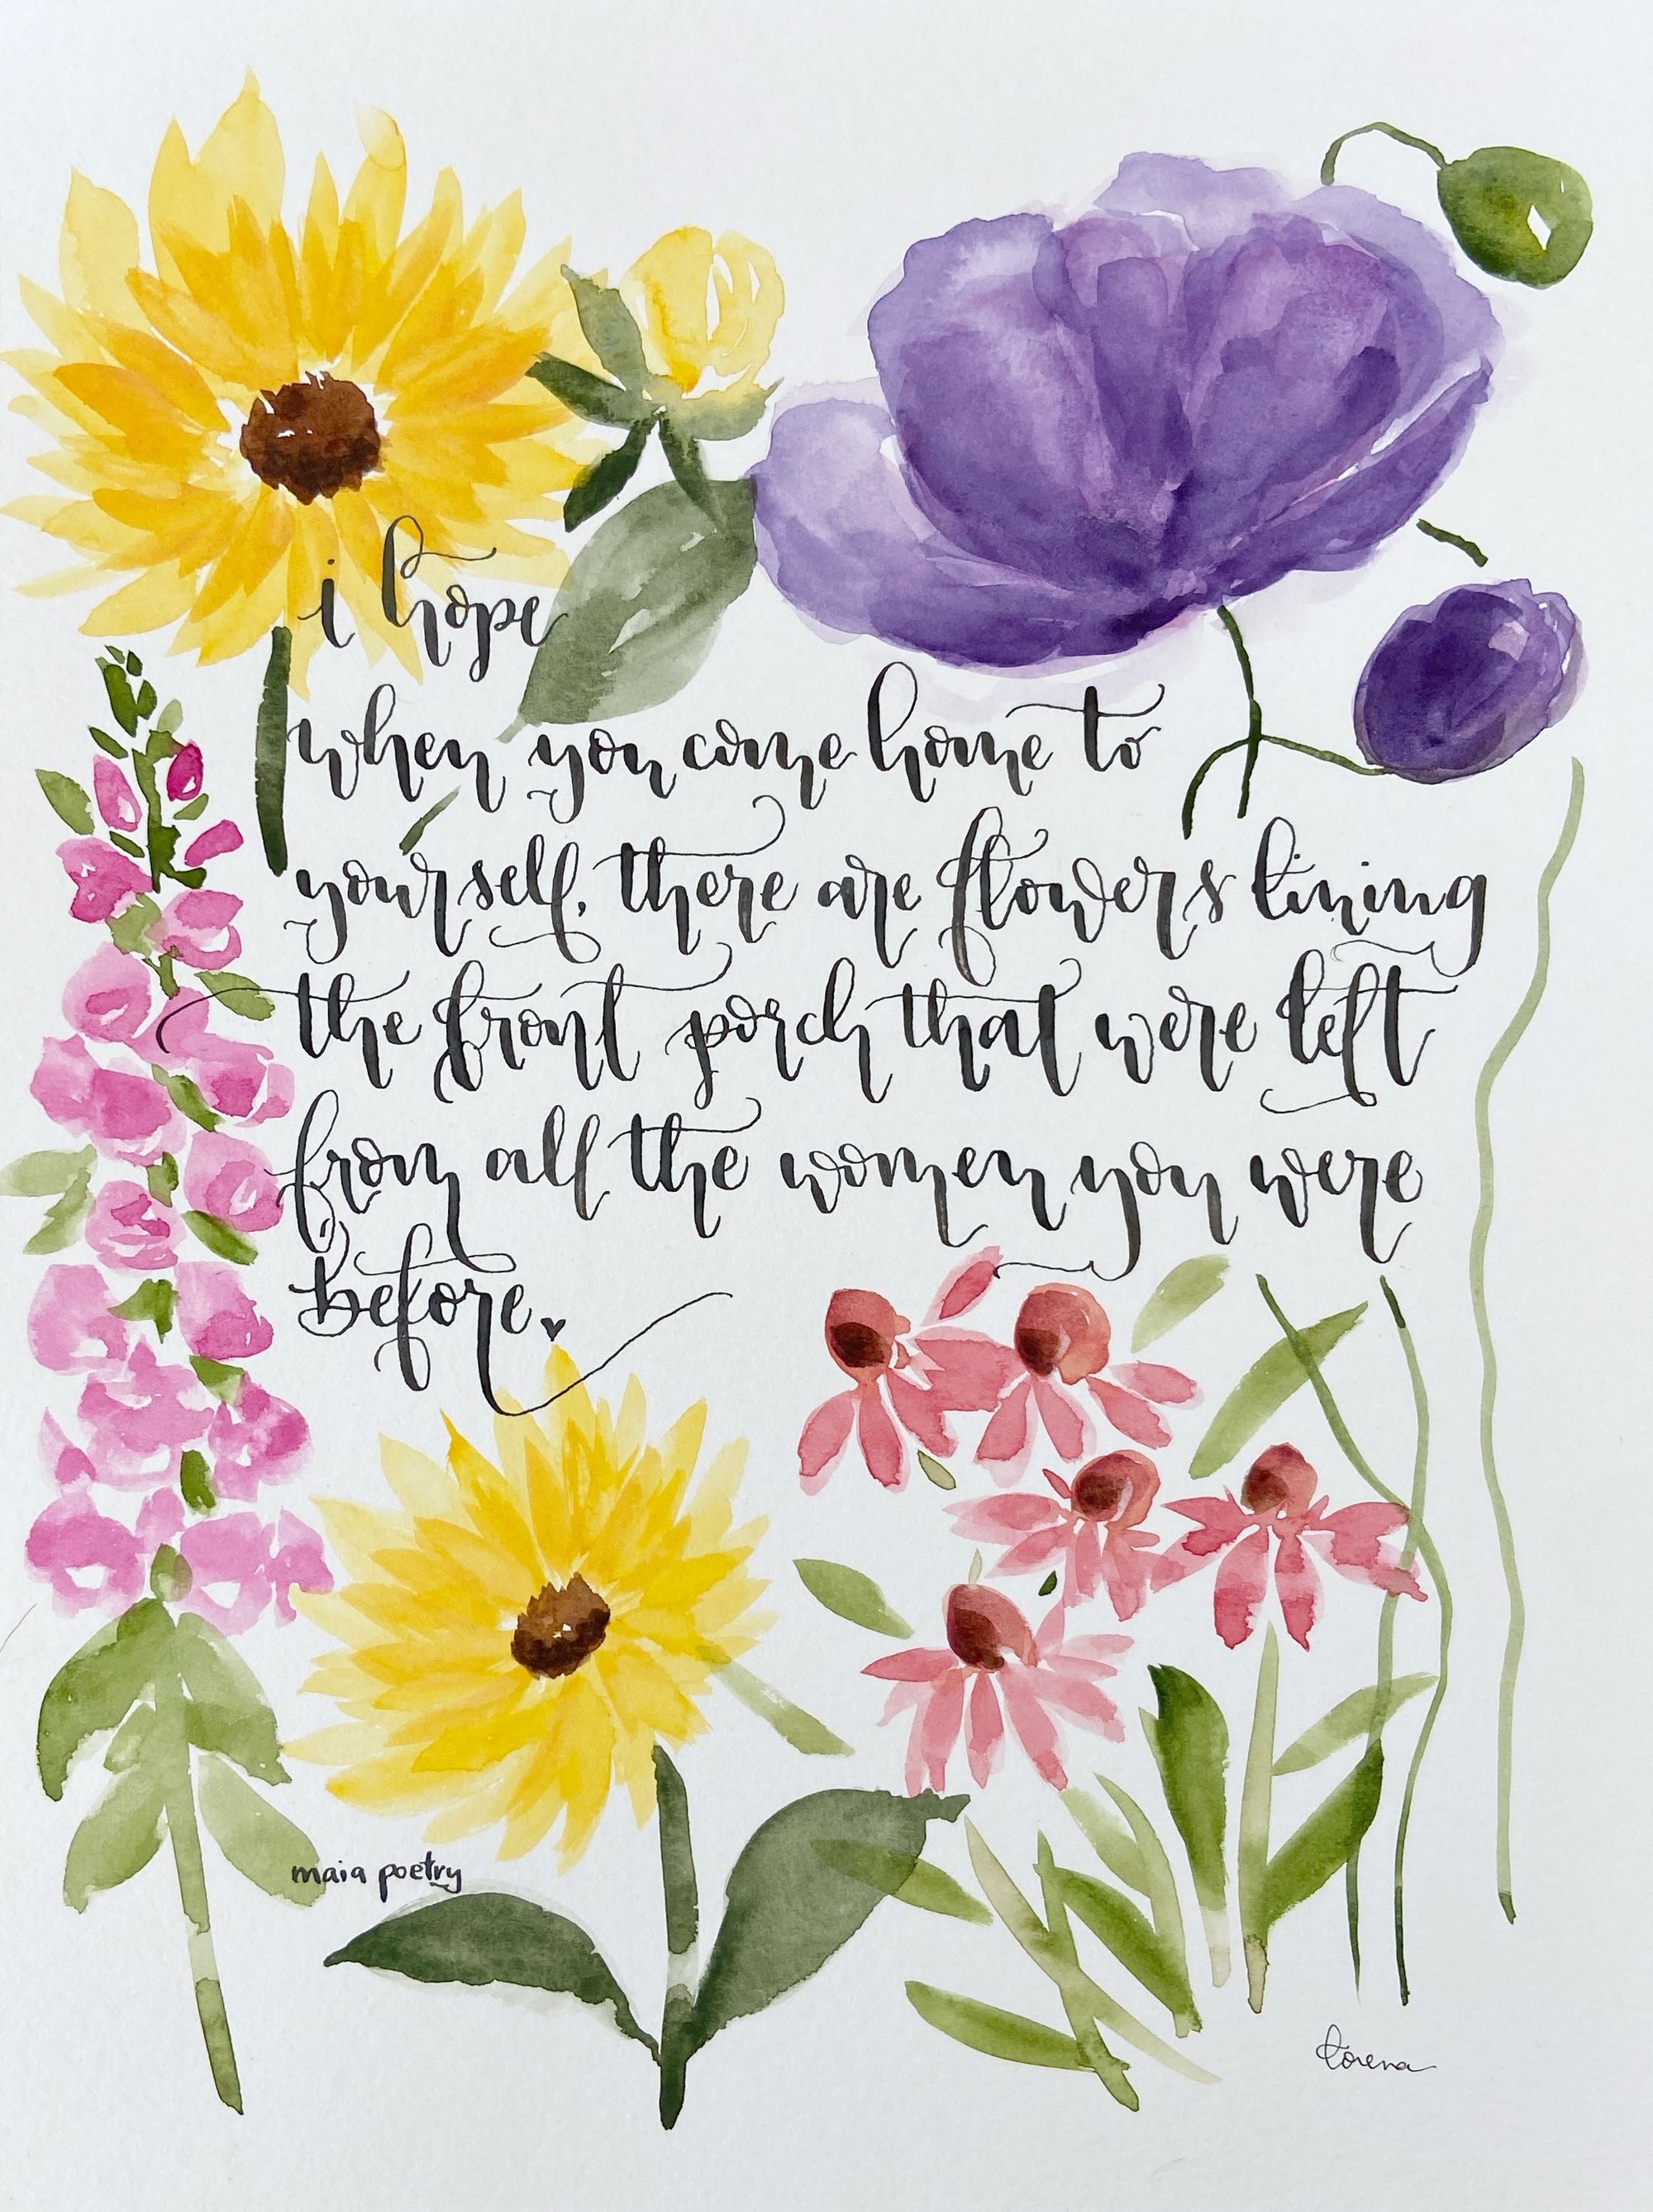 i hope
when you come home to
yourself, there are flowers lining
the front porch that were left
from all the women you were
before.
maia poetry
Lorena